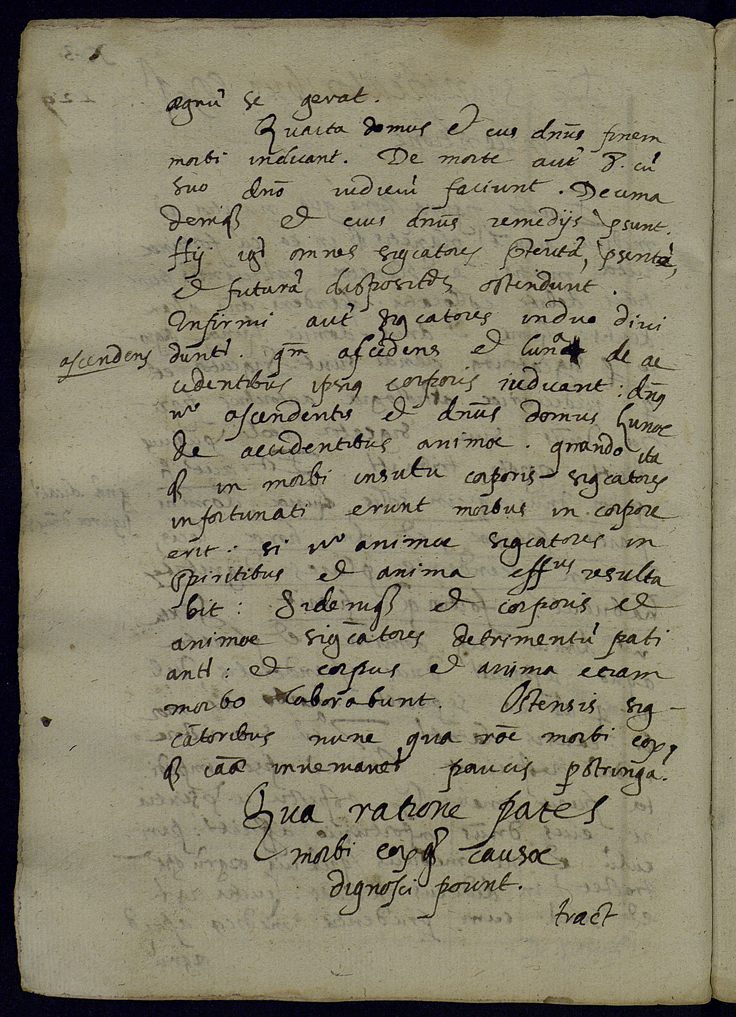 ægrū se gerat.
Quarta domus et eius dnūs finem
morbi indicant. De morte aut̄ 8. cū
suo dnō iudiciū faciunt. Decima
demiq̄ et eius dnūs remedijs p̄sunt.
Hij igr̄ omnes sigcatores p̄terita, p̄sentia,
et futura dispositōs ostendunt.
Infirmi aut̄ sigcatores in duo divi
duntr̄. qm̄ ascēdens et luna de ac
ascendens
cidentibus ipsiq corporis iudicant: dnq
vᵒ ascendentis et dnūs domus Lunæ
de accidentibus animæ. quando ita
q̄ in morbi insultu corporis sigcatores
infortunati erunt morbus in corpore
erit: si vᵒ animæ sigcatores in
spiritibus et anima effus resulta
bit: Si deniq̄ et corporis et
animæ sigcatores detrimentū pati
antr̄: et corpus et anima etiam
morbo laborabunt. Ostensis sig-
cātoribus nunc qua rōe morbi eoꝝ
q̄ cāæ inveniantr̄ paucis p̄stringā.
Qua ratione partes
morbi eoꝝq̄ causæ
dignosci poūnt.
tract